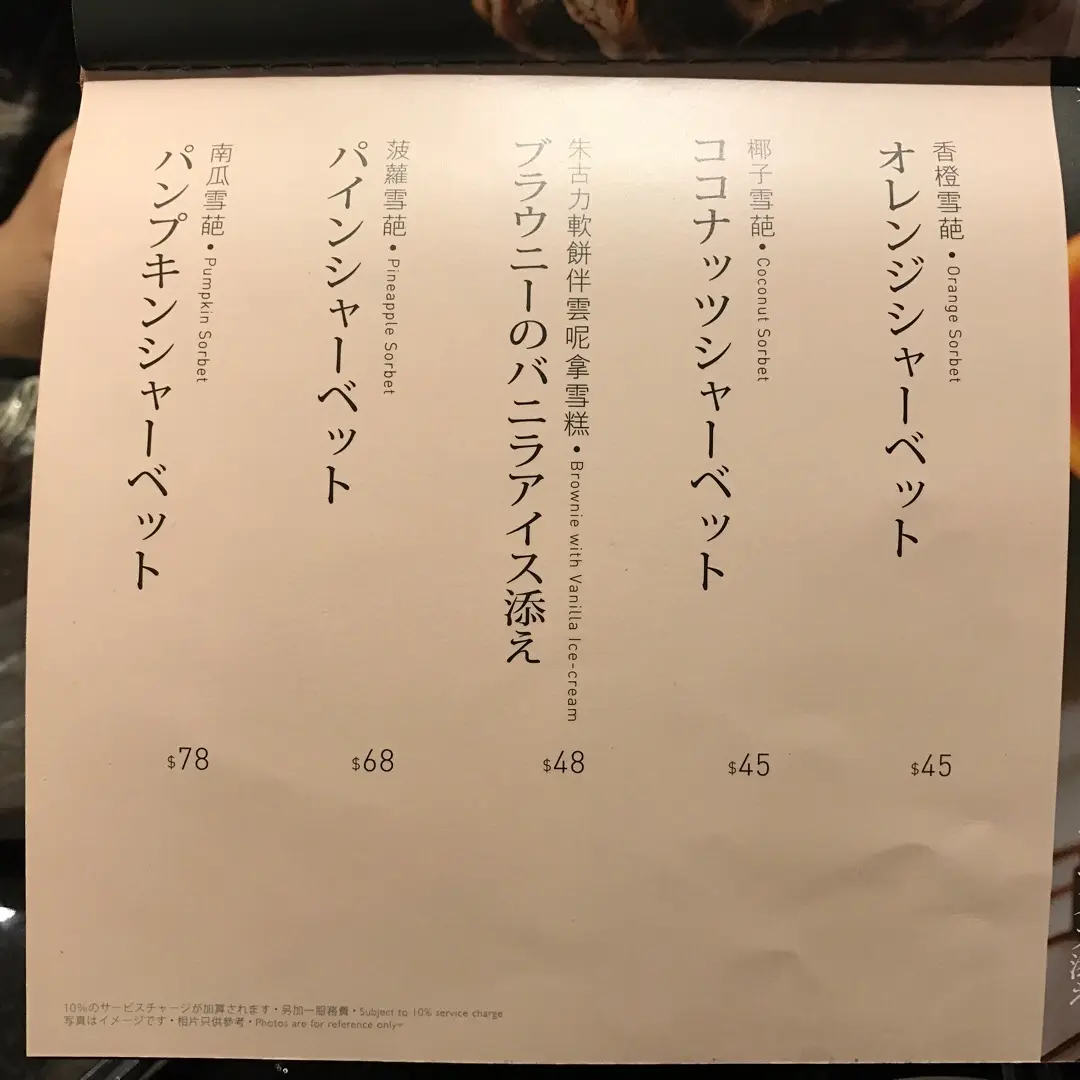 香橙雪葩・Orange Sorbet
オレンジシャーベット
$45
椰子雪葩・Coconut Sorbet
ココナッツシャーベット
$45
朱古力軟餅伴雲呢拿雪糕・Brownie with Vanilla Ice-cream
ブラウニーのバニラアイス添え
$48
菠蘿雪葩・Pineapple Sorbet
パインシャーベット
$68
南瓜雪葩・Pumpkin Sorbet
パンプキンシャーベット
$78
10%のサービスチャージが加算されます・另加一服務費・Subject to 10% service charge
写真はイメージです・相片只供參考・Photos are for reference only